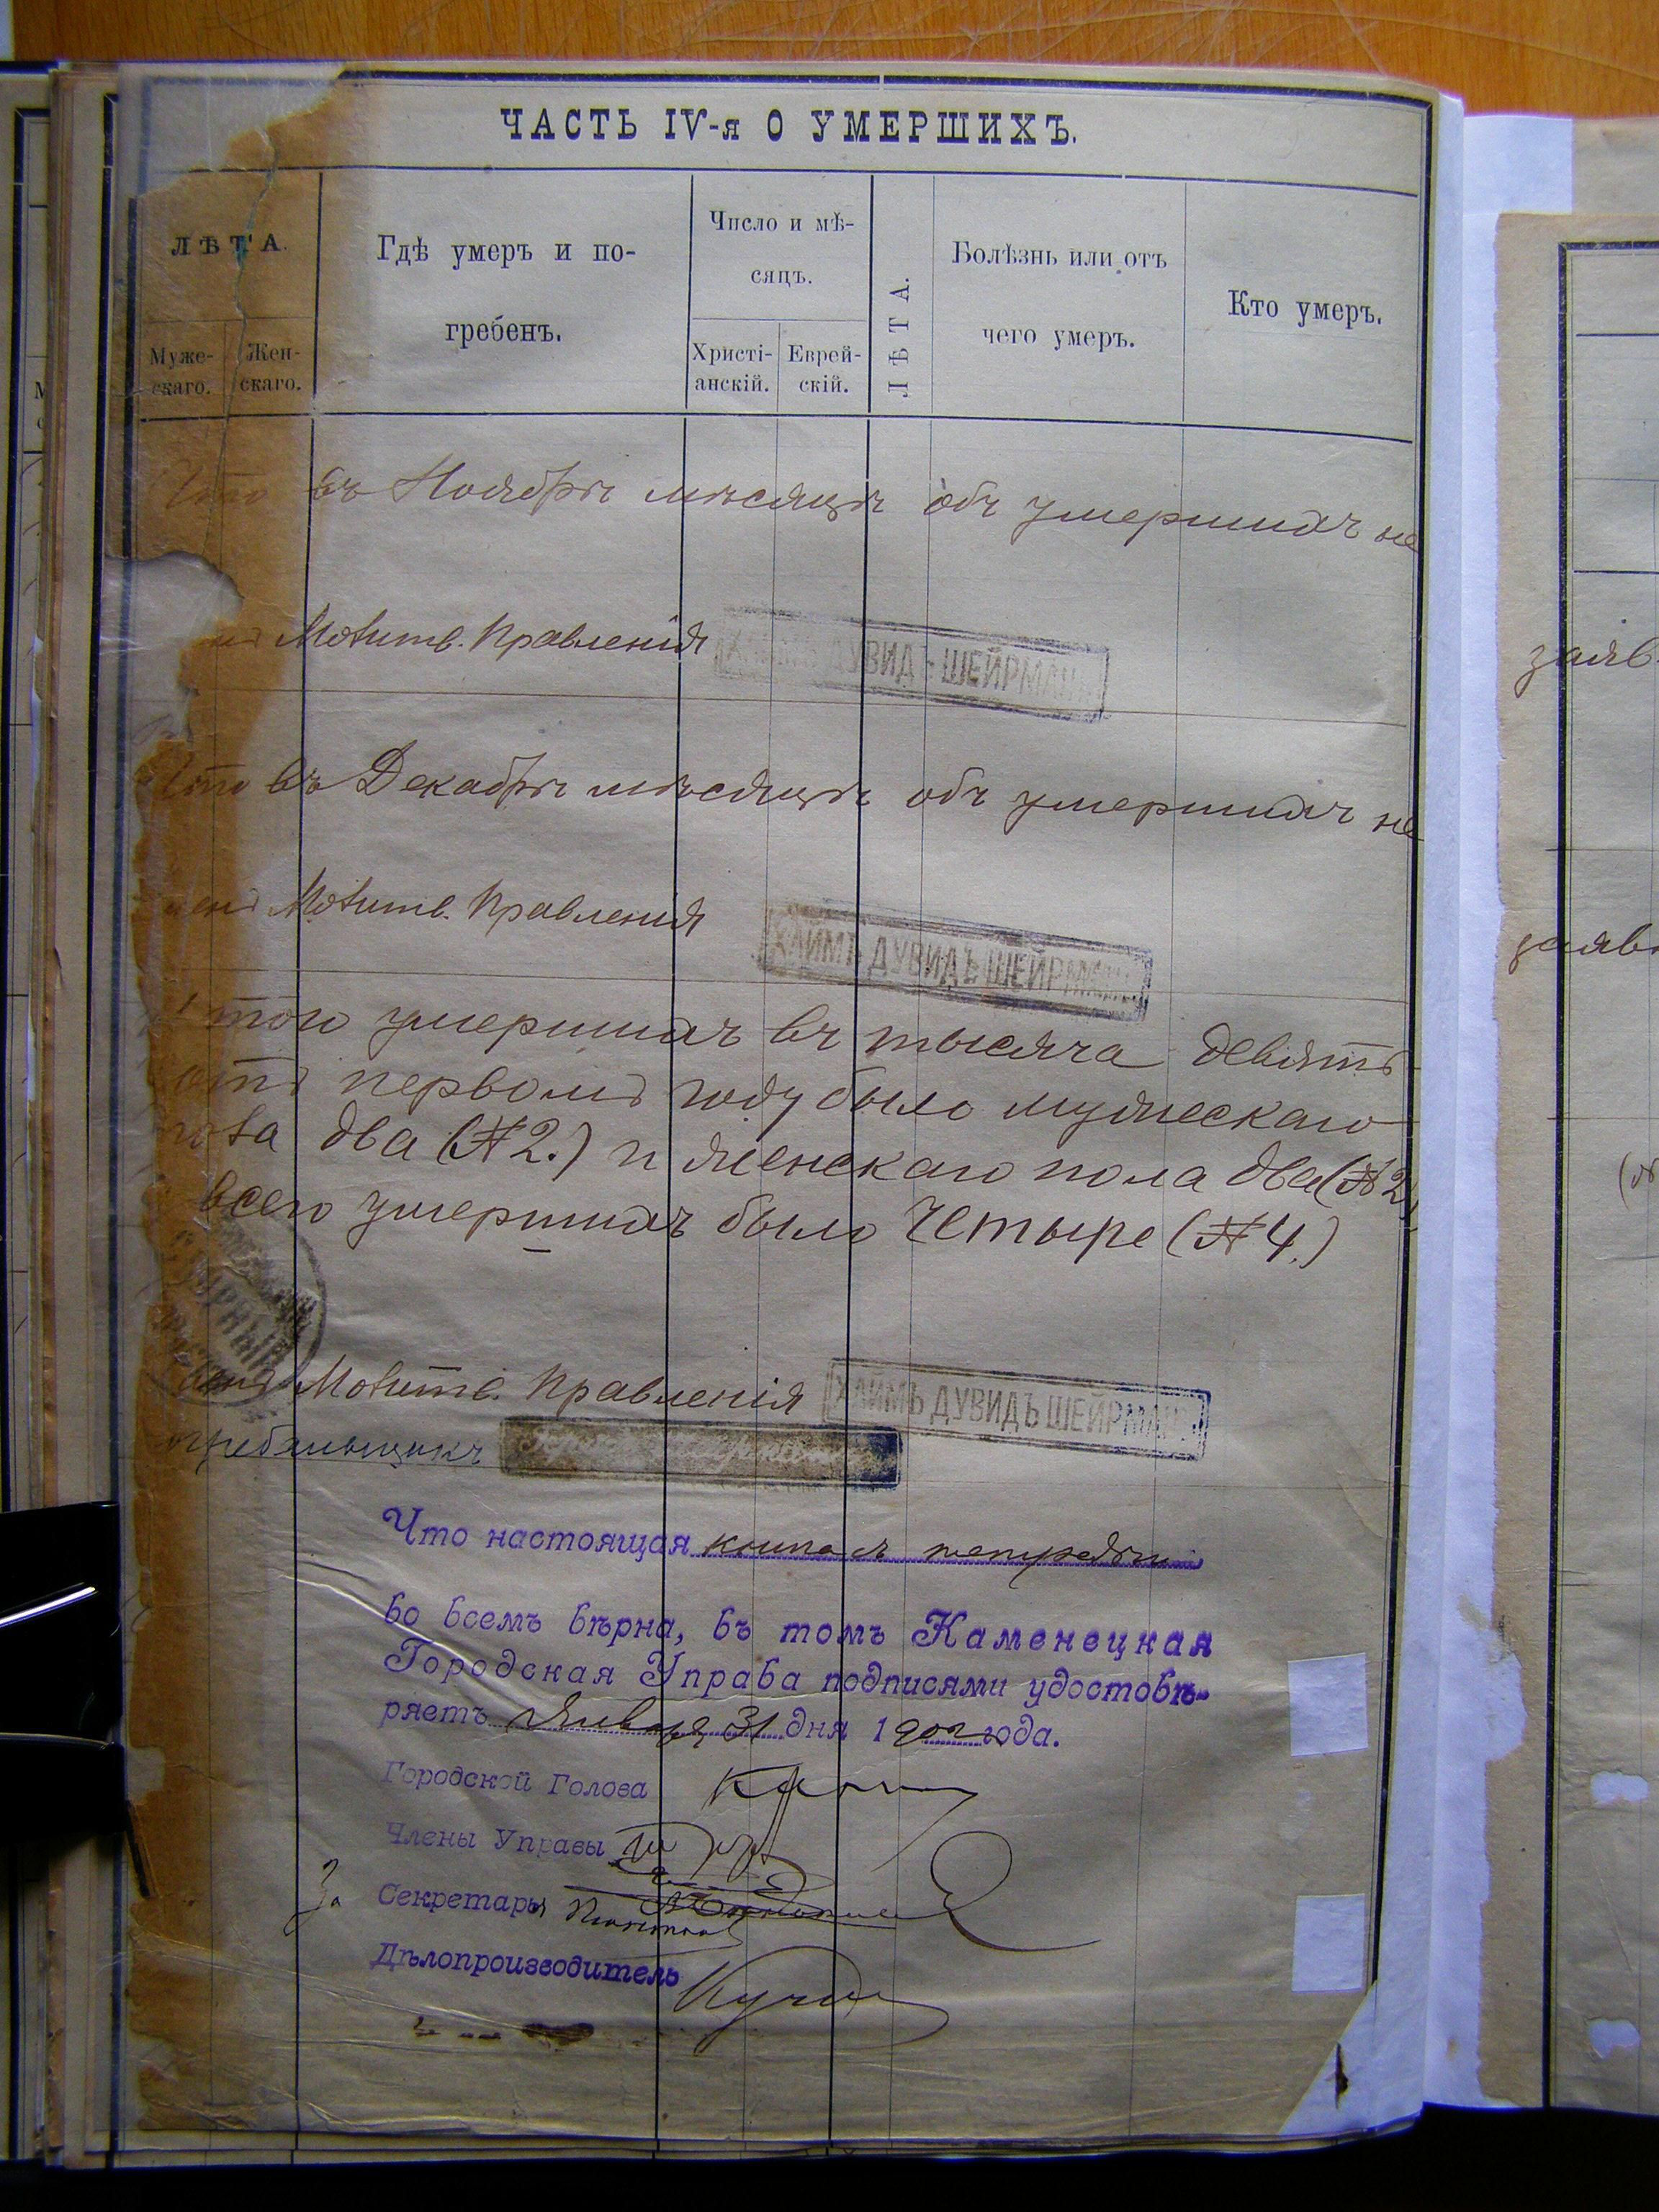 ЧАСТЬ IV-я О УМЕРШИХЪ.
ЛѢТА.
Муже-
скаго.
Жен-
скаго.
Гдѣ умеръ и по-
гребенъ.
Число и мѣ-
сяцъ.
Христі-
анскій.
Еврей-
скій.
ЛѢТА.
Болѣзнь или отъ
чего умеръ.
Кто умеръ.
Что въ Ноябрѣ мѣсяцѣ объ умершихъ не
Молитв. Правленія
ДУВИДЪ ШЕЙРМАНЪ
Что въ Декабрѣ мѣсяцѣ объ умершихъ не
Молитв. Правленія
ХАИМЪ ДУВИДЪ ШЕЙРМАНЪ
Итого умершихъ въ тысяча девять
сотъ первомъ году было мужескаго
пола два (№ 2.) и женскаго пола два (№ 2)
всего умершихъ было Четыре (№ 4.)
Молитв. Правленія
ХАИМЪ ДУВИДЪ ШЕЙРМАНЪ
Что настоящая
во всемъ вѣрна, въ томъ Каменецкая
Городская Управа подписями удостовѣ-
ряетъ Января 31 дня 1902 года.
Городской Голова
Члены Управы
За Секретаря
Дѣлопроизводитель
заяв
заяв